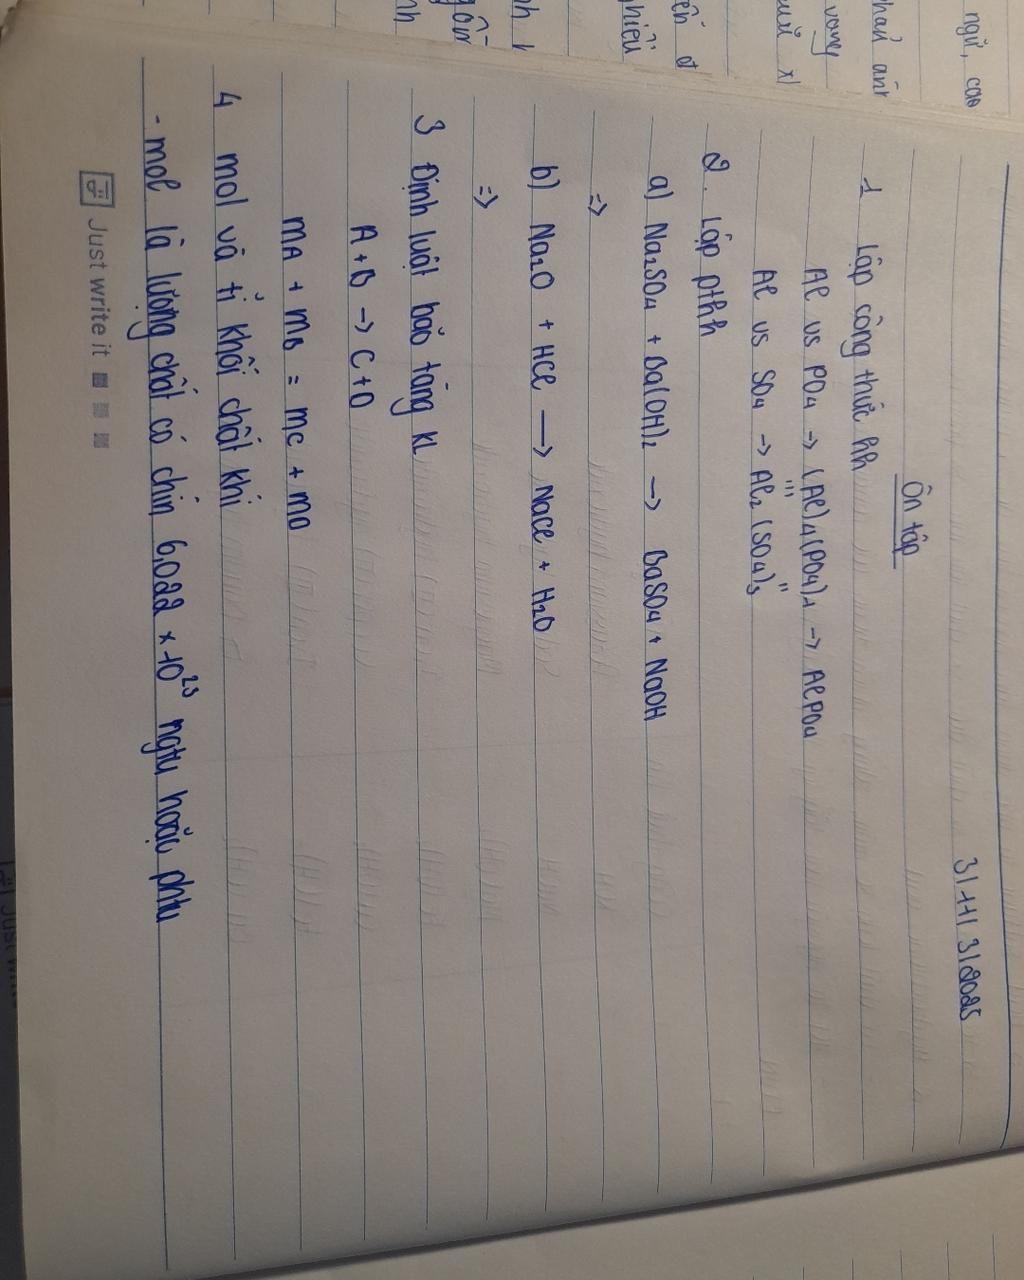 31 11 / 3/2025
Ôn tập
1 Lập công thức hh
Al vs PO4 -> (Al)1(PO4)1 -> AlPO4
Al vs SO4 -> Al2 (SO4)3
III II
2. Lập pthh
a) Na2SO4 + Ba(OH)2 -> BaSO4 + NaOH
=>
b) Na2O + HCl -> NaCl + H2O
=>
3 Định luật bảo tàng kl
A + B -> C + D
mA + mB = mC + mD
4 mol và tỉ khối chất khí
- mol là lượng chất có chín 6,022 × 10²³ ngtu hoặc phtu
Just write it
ngữ, cao
vọng
ến đ